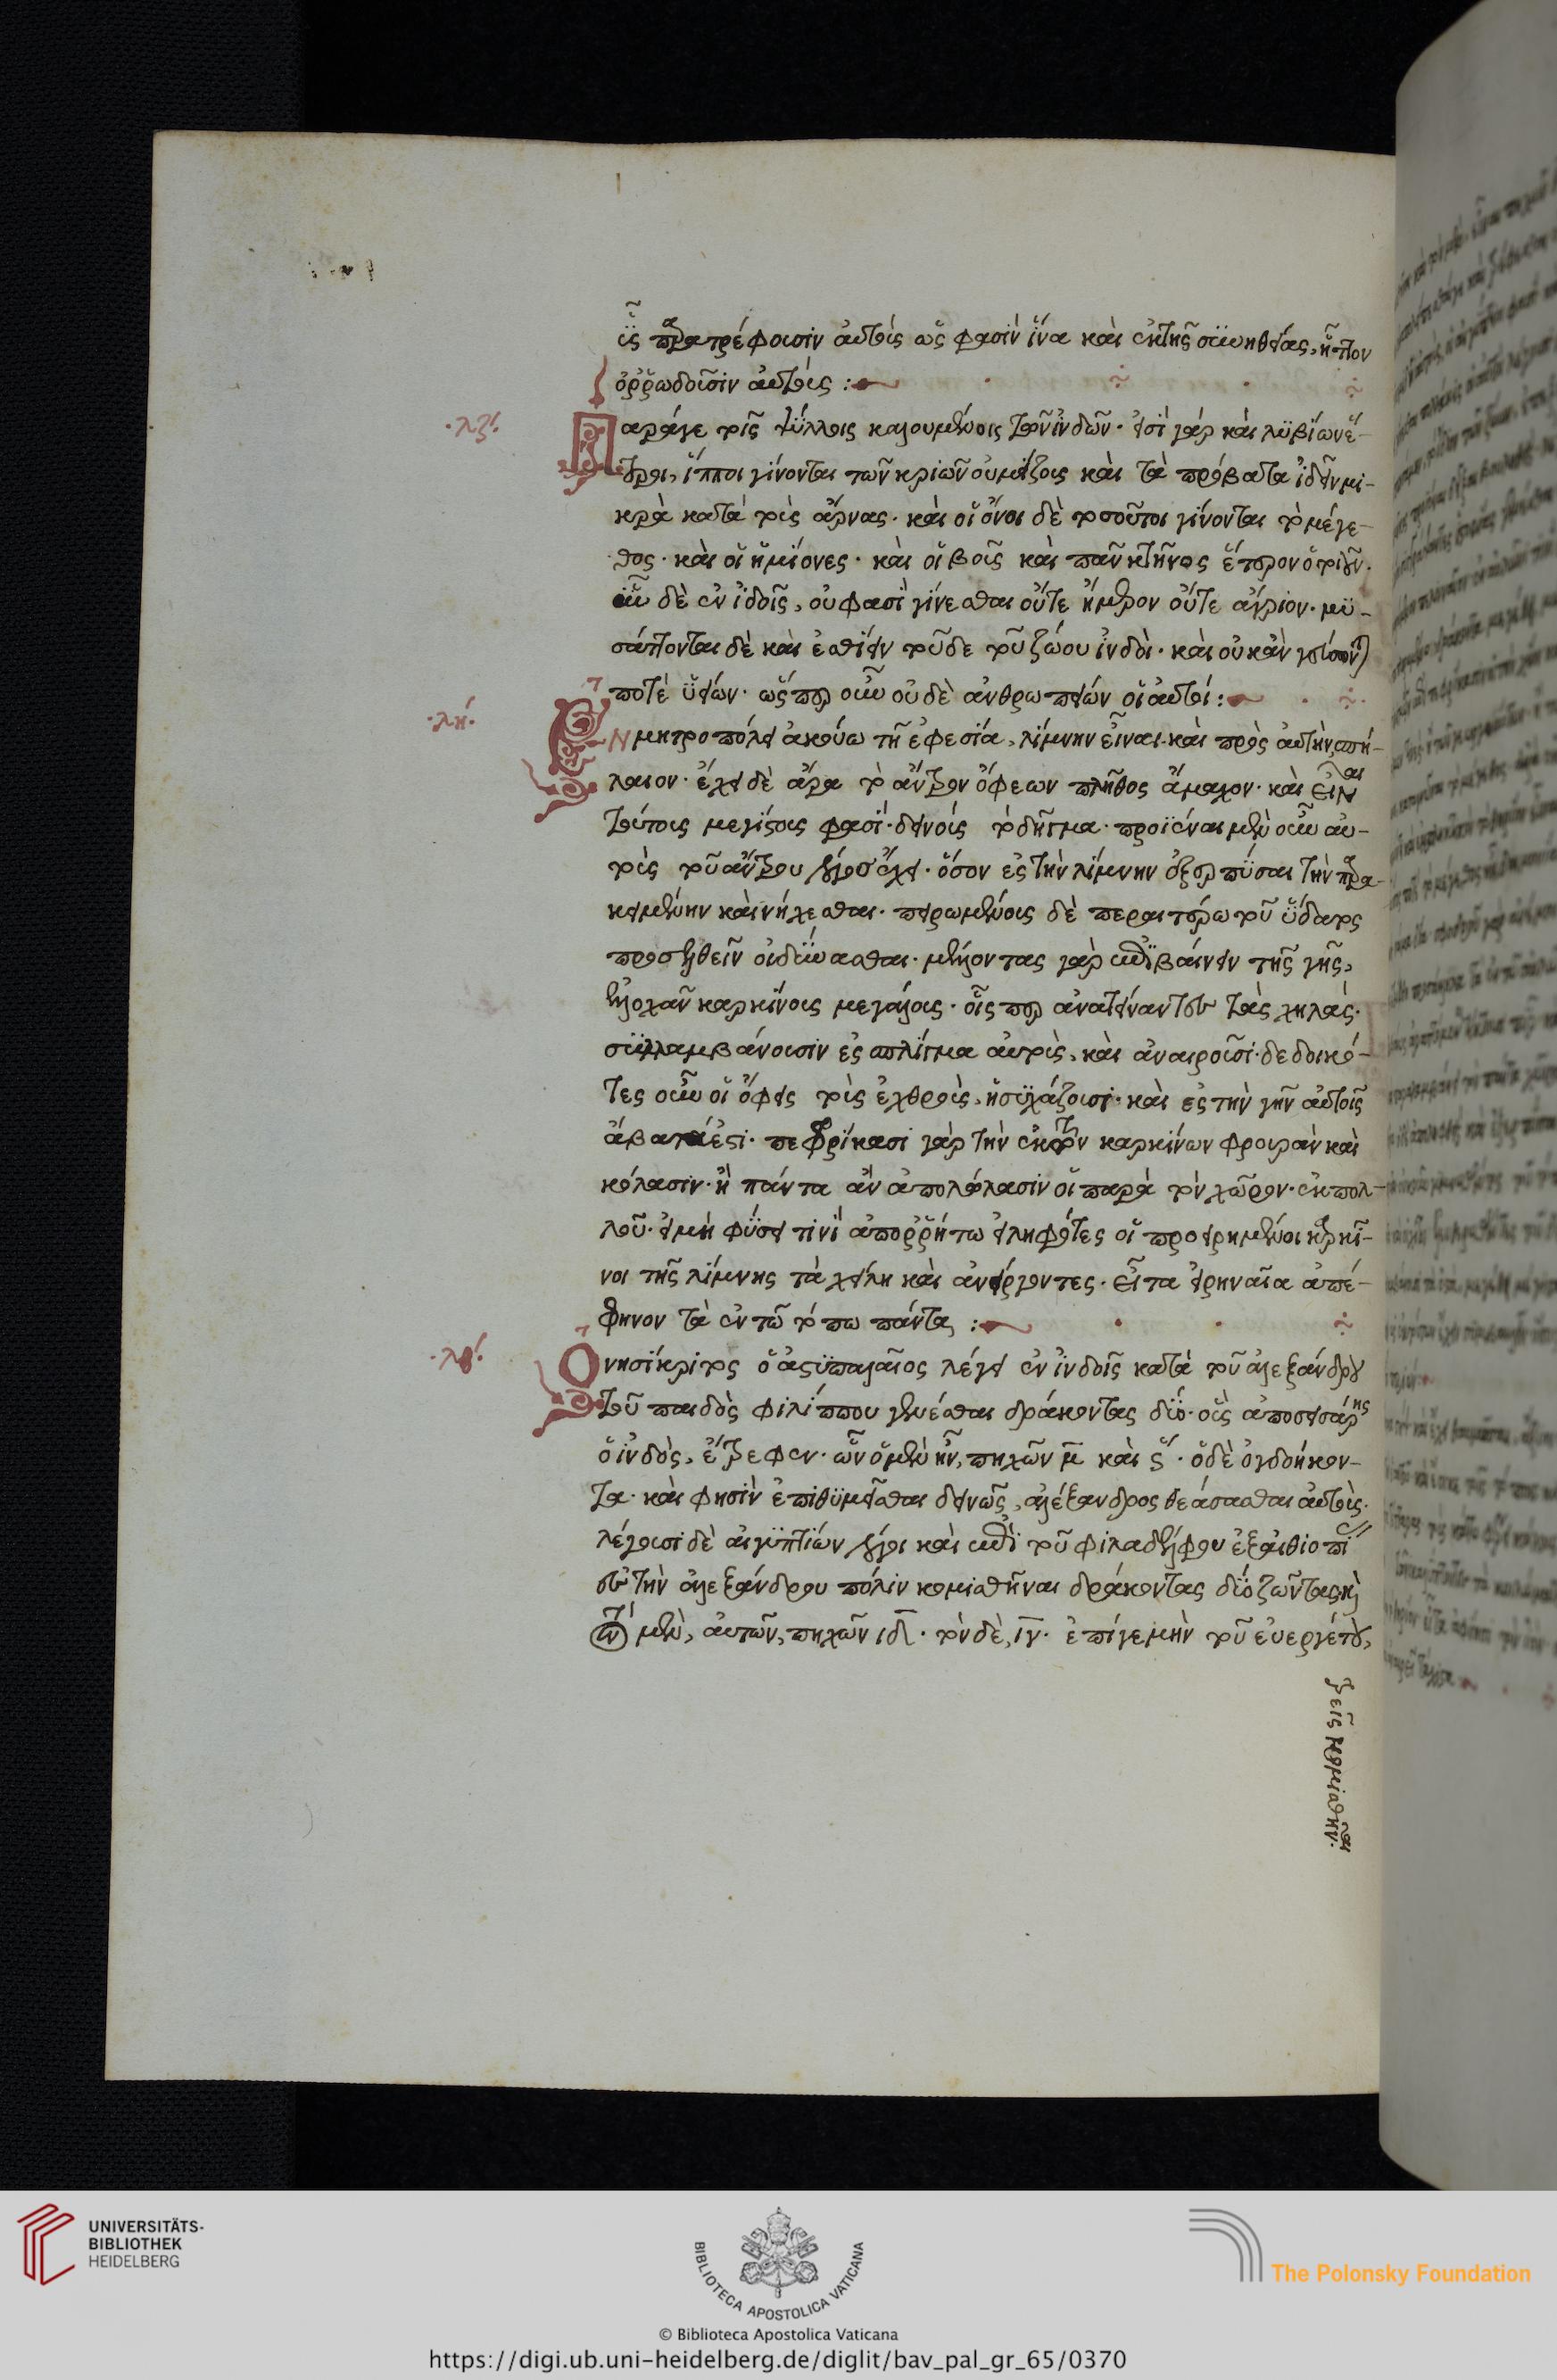 ὗς παρατρέφουσιν αὐτοῖς ὥς φασὶν ἵνα καὶ ἐκ τῆς συνηθείας, ἧττον
ὀρρωδοῦσιν αὐτούς :
·λζ·
Παράγε τοῖς ψύλλοις καλουμένοις τῶν ἰνδῶν· εἰσὶ γάρ καὶ λυβίων ἕ-
τεροι, ἵπποι γίνονται τῶν κριῶν οὐ μείζους καὶ τὰ πρόβατα ἰδεῖν μι-
κρὰ κατὰ τοὺς ἄρνας· καὶ οἱ ὄνοι δὲ τοσοῦτοι γίνονται τὸ μέγε-
θος· καὶ οἱ ἡμίονες· καὶ οἱ βοῦς καὶ πᾶν κτῆνος ἕτερον ὁτιοῦν·
ὗν δὲ ἐν ἰδοῖς, οὐ φασὶ γίνεσθαι οὔτε ἥμερον οὔτε ἄγριον· μυ-
σάττονται δὲ καὶ ἐσθίειν τοῦδε τοῦ ζώου ἰνδοὶ· καὶ οὐκ ἂν γεύσοιντό
ποτὲ ὑείων· ὥσπερ οὖν οὐδὲ ἀνθρωπείων οἱ αὐτοί :
·λη·
Ἐν μητροπόλει ἀκούω τῆ ἐφεσία, λίμνην εἶναι· καὶ πρὸς αὐτὴν σπή-
λαιον· ἔχει δὲ ἄρα τὸ ἄντρον ὄφεων πλῆθος ἄμαχον· καὶ εἶναι
τούτους μεγίστους φασί· δεινοὺς τὸ δῆγμα· προϊέναι μὲν οὖν αὐ-
τοὺς τοῦ ἄντρου λόγος ἔχει· ὅσον ἐς τὴν λίμνην ἐξερπύσαι τὴν παρα-
κειμένην καὶ νήχεσθαι· πειρωμένοις δὲ περαιτέρω τοῦ ὕδατος
προσελθεῖν οὐ δύνασθαι· μέλλοντας γὰρ ἐπιβαίνειν τῆς γῆς,
ἐλλοχᾶν καρκίνους μεγάλους· οἵσπερ ἀνατείναντες τὰς χηλάς·
συλλαμβάνουσιν ἐς πλίγμα αὐτοὺς, καὶ ἀναιροῦσι· δεδοικό-
τες οὖν οἱ ὄφεις τοὺς ἐχθροὺς, ἡσυχάζουσι· καὶ ἐς τὴν γῆν αὐτοῖς
ἄβατά ἐστι· πεφρίκασι γὰρ τὴν ἐκ τῶν καρκίνων φρουρὰν καὶ
κόλασιν· ἢ πάντα ἂν ἀπολώλασιν οἱ παρὰ τὸν χῶρον· ἐκ πολ-
λοῦ· εἰ μὴ φύσει τινὶ ἀπορρήτω εἰληφότες οἱ προειρημένοι καρκῖ-
νοι τῆς λίμνης τὰ χείλη καὶ ἀνείργοντες· εἶτα εἰρηναῖα ἀπέ-
φηνον τὰ ἐν τῶ τόπω πάντα :
·λθ·
Ὀνησίκριτος ὁ ἀστυπαλαῖος λέγει ἐν ἰνδοῖς κατὰ τοῦ ἀλεξάνδρου
τοῦ παιδὸς φιλίππου γενέσθαι δράκοντας δύο· οὓς ἀποσεισάρης
ὁ ἰνδὸς, ἔτρεφεν· ὧν ὁ μὲν ἦν, πηχῶν μ̄ καὶ ς· ὁ δὲ ὀγδοήκον-
τα· καὶ φησὶν ἐπιθυμεῖσθαι δεινῶς, ἀλέξανδρος θεάσασθαι αὐτούς·
λέγουσι δὲ αἰγυπτίων λόγοι καὶ ἐπὶ τοῦ φιλαδέλφου ἐξ αἰθιοπί
ες τὴν ἀλεξάνδρου πόλιν κομισθῆναι δράκοντας δύο ζῶντας· καὶ
τὸν μὲν, αὐτῶν, πηχῶν ιδ· τὸν δὲ, ιγ· ἐπί γε μὴν τοῦ εὐεργέτου,
τρεῖς κομισθῆναι·
UNIVERSITÄTS-
BIBLIOTHEK
HEIDELBERG
BIBLIOTECA APOSTOLICA VATICANA
The Polonsky Foundation
© Biblioteca Apostolica Vaticana
https://digi.ub.uni-heidelberg.de/diglit/bav_pal_gr_65/0370